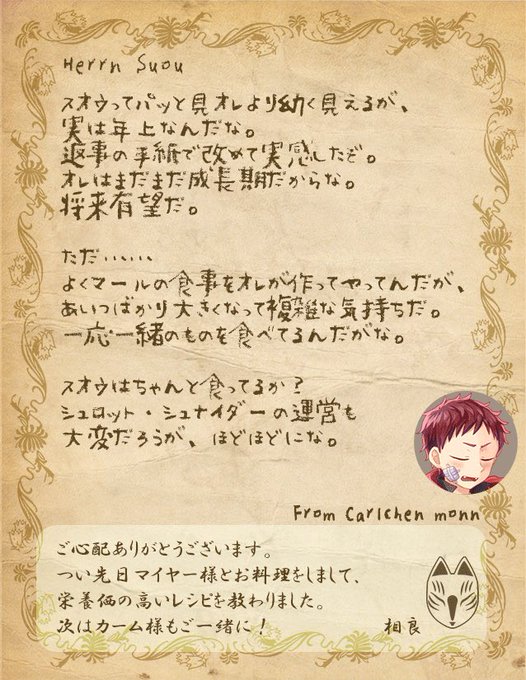 Herrn Suou
スオウってパッと見オレより幼く見えるが、
実は年上なんだな。
返事の手紙で改めて実感したぞ。
オレはまだまだ成長期だからな。
将来有望だ。
ただ……
よくマールの食事をオレが作ってやってんだが、
あいつばかり大きくなって複雑な気持ちだ。
一応一緒のものを食べてるんだがな。
スオウはちゃんと食ってるか?
シュロット・シュナイダーの運営も
大変だろうが、ほどほどにな。
From Carlchen monn
ご心配ありがとうございます。
つい先日マイヤー様とお料理をしまして、
栄養価の高いレシピを教わりました。
次はカーム様もご一緒に!
相良